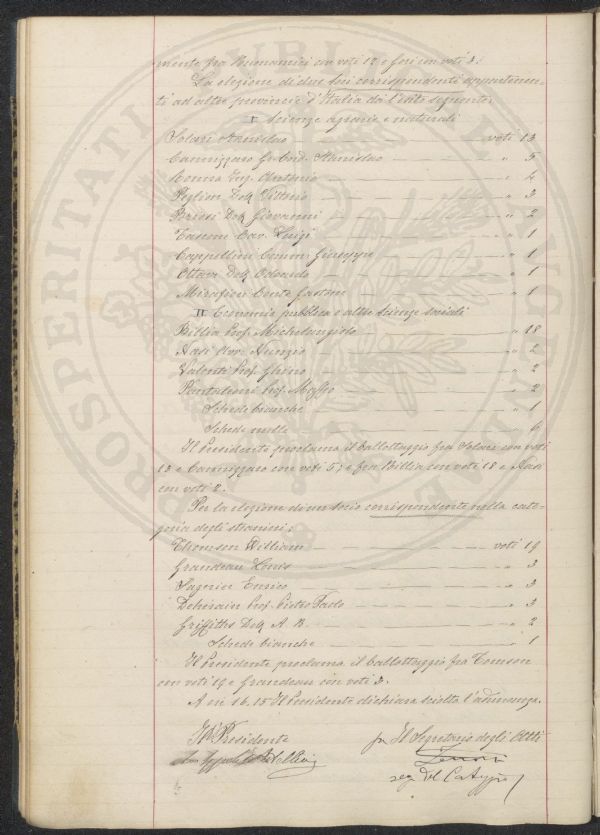 mento fra Buonamici con voti 12 e fori con voti 3.
La elezione di due soci corrispondenti appartenen-
ti ad altre provincie d'Italia dà l'esito seguente:
I Scienze agrarie e naturali
Solari Stanislao voti 13
Cannizzaro Stanislao " 5
Antonio " 4
Peglion Dott. Vittorio " 3
Briosi Dott. Giovanni " 2
Cav. Luigi " 1
Cappellini Comm. Giuseppe " 1
Ottavi Dott. Edoardo " 1
Mirafiori Conte Gastone " 1
II Economia pubblica e altre scienze sociali
Billia Prof. Michelangelo " 18
Nasi Avv. Nunzio " 2
Valenti Prof. Ghino " 2
Pantaleoni Prof. Maffeo " 2
Schede bianche " 1
Schede nulle " 6
Il Presidente proclama il ballottaggio fra Solari con voti
13 e Cannizzaro con voti 5; e fra Billia con voti 18 e Nasi
con voti 2.
Per la elezione di un socio corrispondente nella cate-
goria degli stranieri:
Thomson William voti 19
Grandeau Louis " 3
Sagnier Enrico " 3
Deherain Prof. Pietro Paolo " 3
Griffiths Dott. A. B. " 2
Schede bianche " 1
Il Presidente proclama il ballottaggio fra Tomson
con voti 19 e Grandeau con voti 3.
A ore 16.15 Il Presidente dichiara sciolta l'adunanza.
Il Presidente
per Il Segretario degli Atti
seg. del
PROSPERITATI PUBLICAE AUGENDAE